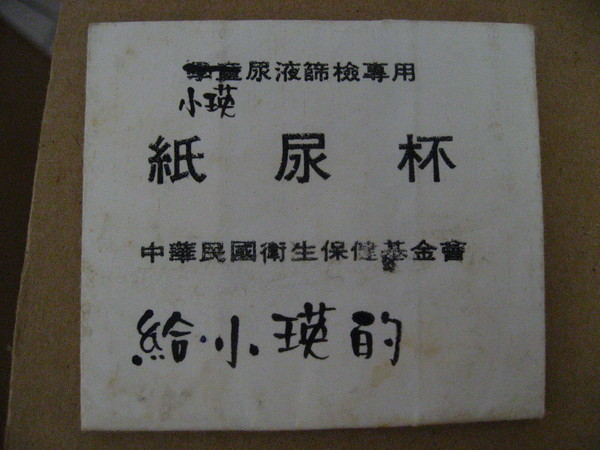 學童尿液篩檢專用
小瑛
紙尿杯
中華民國衛生保健基金會
給小瑛的